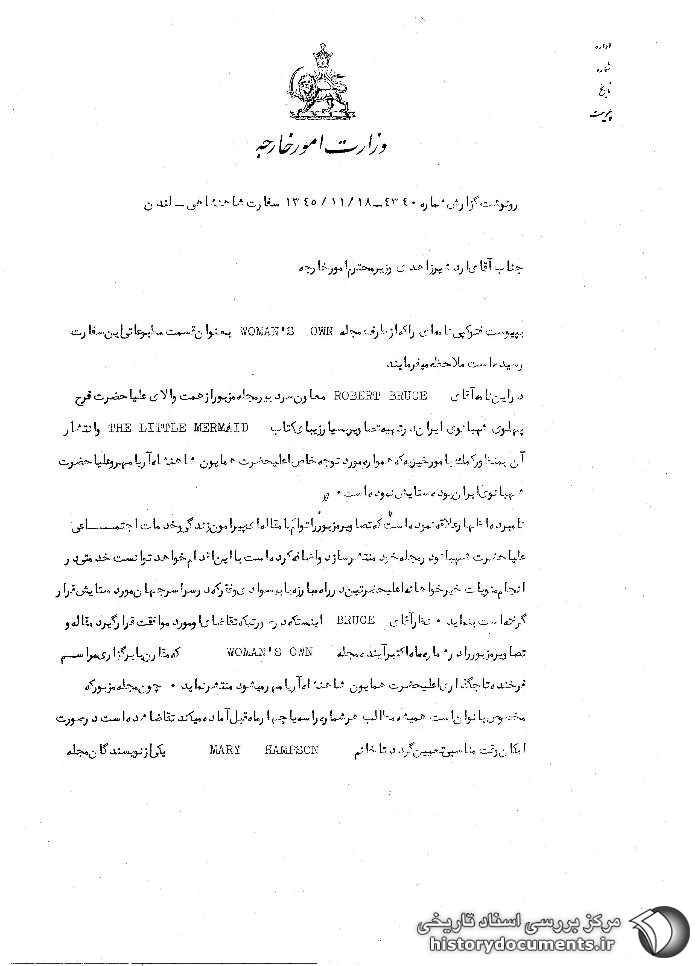 اداره
شماره
تاریخ
پیوست
وزارت امور خارجه
رونوشت گزارش شماره ۴۳۴۰ــ ۱۳۴۵/۱۱/۱۸ سفارت شاهنشاهی ــ لندن
جناب آقای اردشیر زاهدی وزیر محترم امور خارجه
بپیوست فتوکپی نامه‌ای را که از طرف مجله WOMAN'S OWN بعنوان قسمت مطبوعاتی این سفارت
رسیده است ملاحظه میفرمایند
در این نامه آقای ROBERT BRUCE معاون سردبیر مجله مزبور از همت والای علیاحضرت فرح
پهلوی شهبانوی ایران در تهیه تصاویر بسیار زیبای کتاب THE LITTLE MERMAID و انتشار
آن بمنظور کمک بامور خیریه که همواره مورد توجه خاص اعلیحضرت همایون شاهنشاه آریامهر و علیاحضرت
شهبانوی ایران بوده ستایش نموده است ۰
نامبرده اظهار علاقه نموده است که تصاویر مزبور را توام با مقاله‌ای پیرامون زندگی و خدمات اجتمـــاعی
علیاحضرت شهبانو در مجله خود منتشر سازد و اضافه کرده است با این اقدام خواهد توانست خدمتی در
انجام منویات خیرخواهانه اعلیحضرتین در راه مبارزه با بیسوادی و فقر که در سراسر جهان مورد ستایش قرار
گرفته است بنماید ۰ نظر آقای BRUCE اینستکه در صورتیکه تقاضای او مورد موافقت قرار گیرد مقاله و
تصاویر مزبور را در شماره ماه اکتبر آینده مجله WOMAN'S OWN که مقارن با برگزاری مراســم
فرخنده تاجگذاری اعلیحضرت همایون شاهنشاه آریامهر میشود منتشر نماید ۰ چون مجله مزبور که
مخصوص بانوان است همیشه مطالب هر شماره را سه یا چهار ماه قبل آماده میکند تقاضا شده است در صورت
امکان وقت مناسبی تعیین گردد تا خانم MARY HAMPSON یکی از نویسندگان مجله
مرکز بررسی اسناد تاریخی
historydocuments.ir